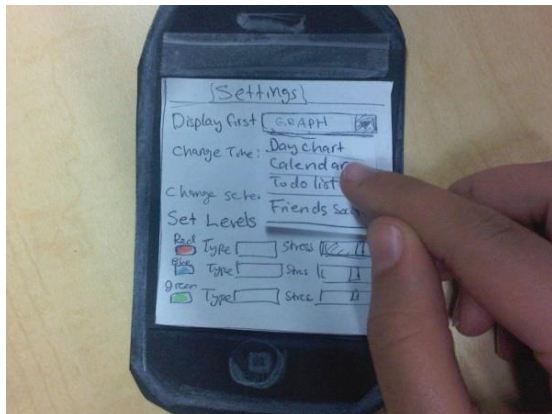 Settings
Display first GRAPH
Change Time: Day chart
Calendar
To do list
Change
Friends
Set Levels
Red Type Stress
Blue Type Stress
green Type Stree